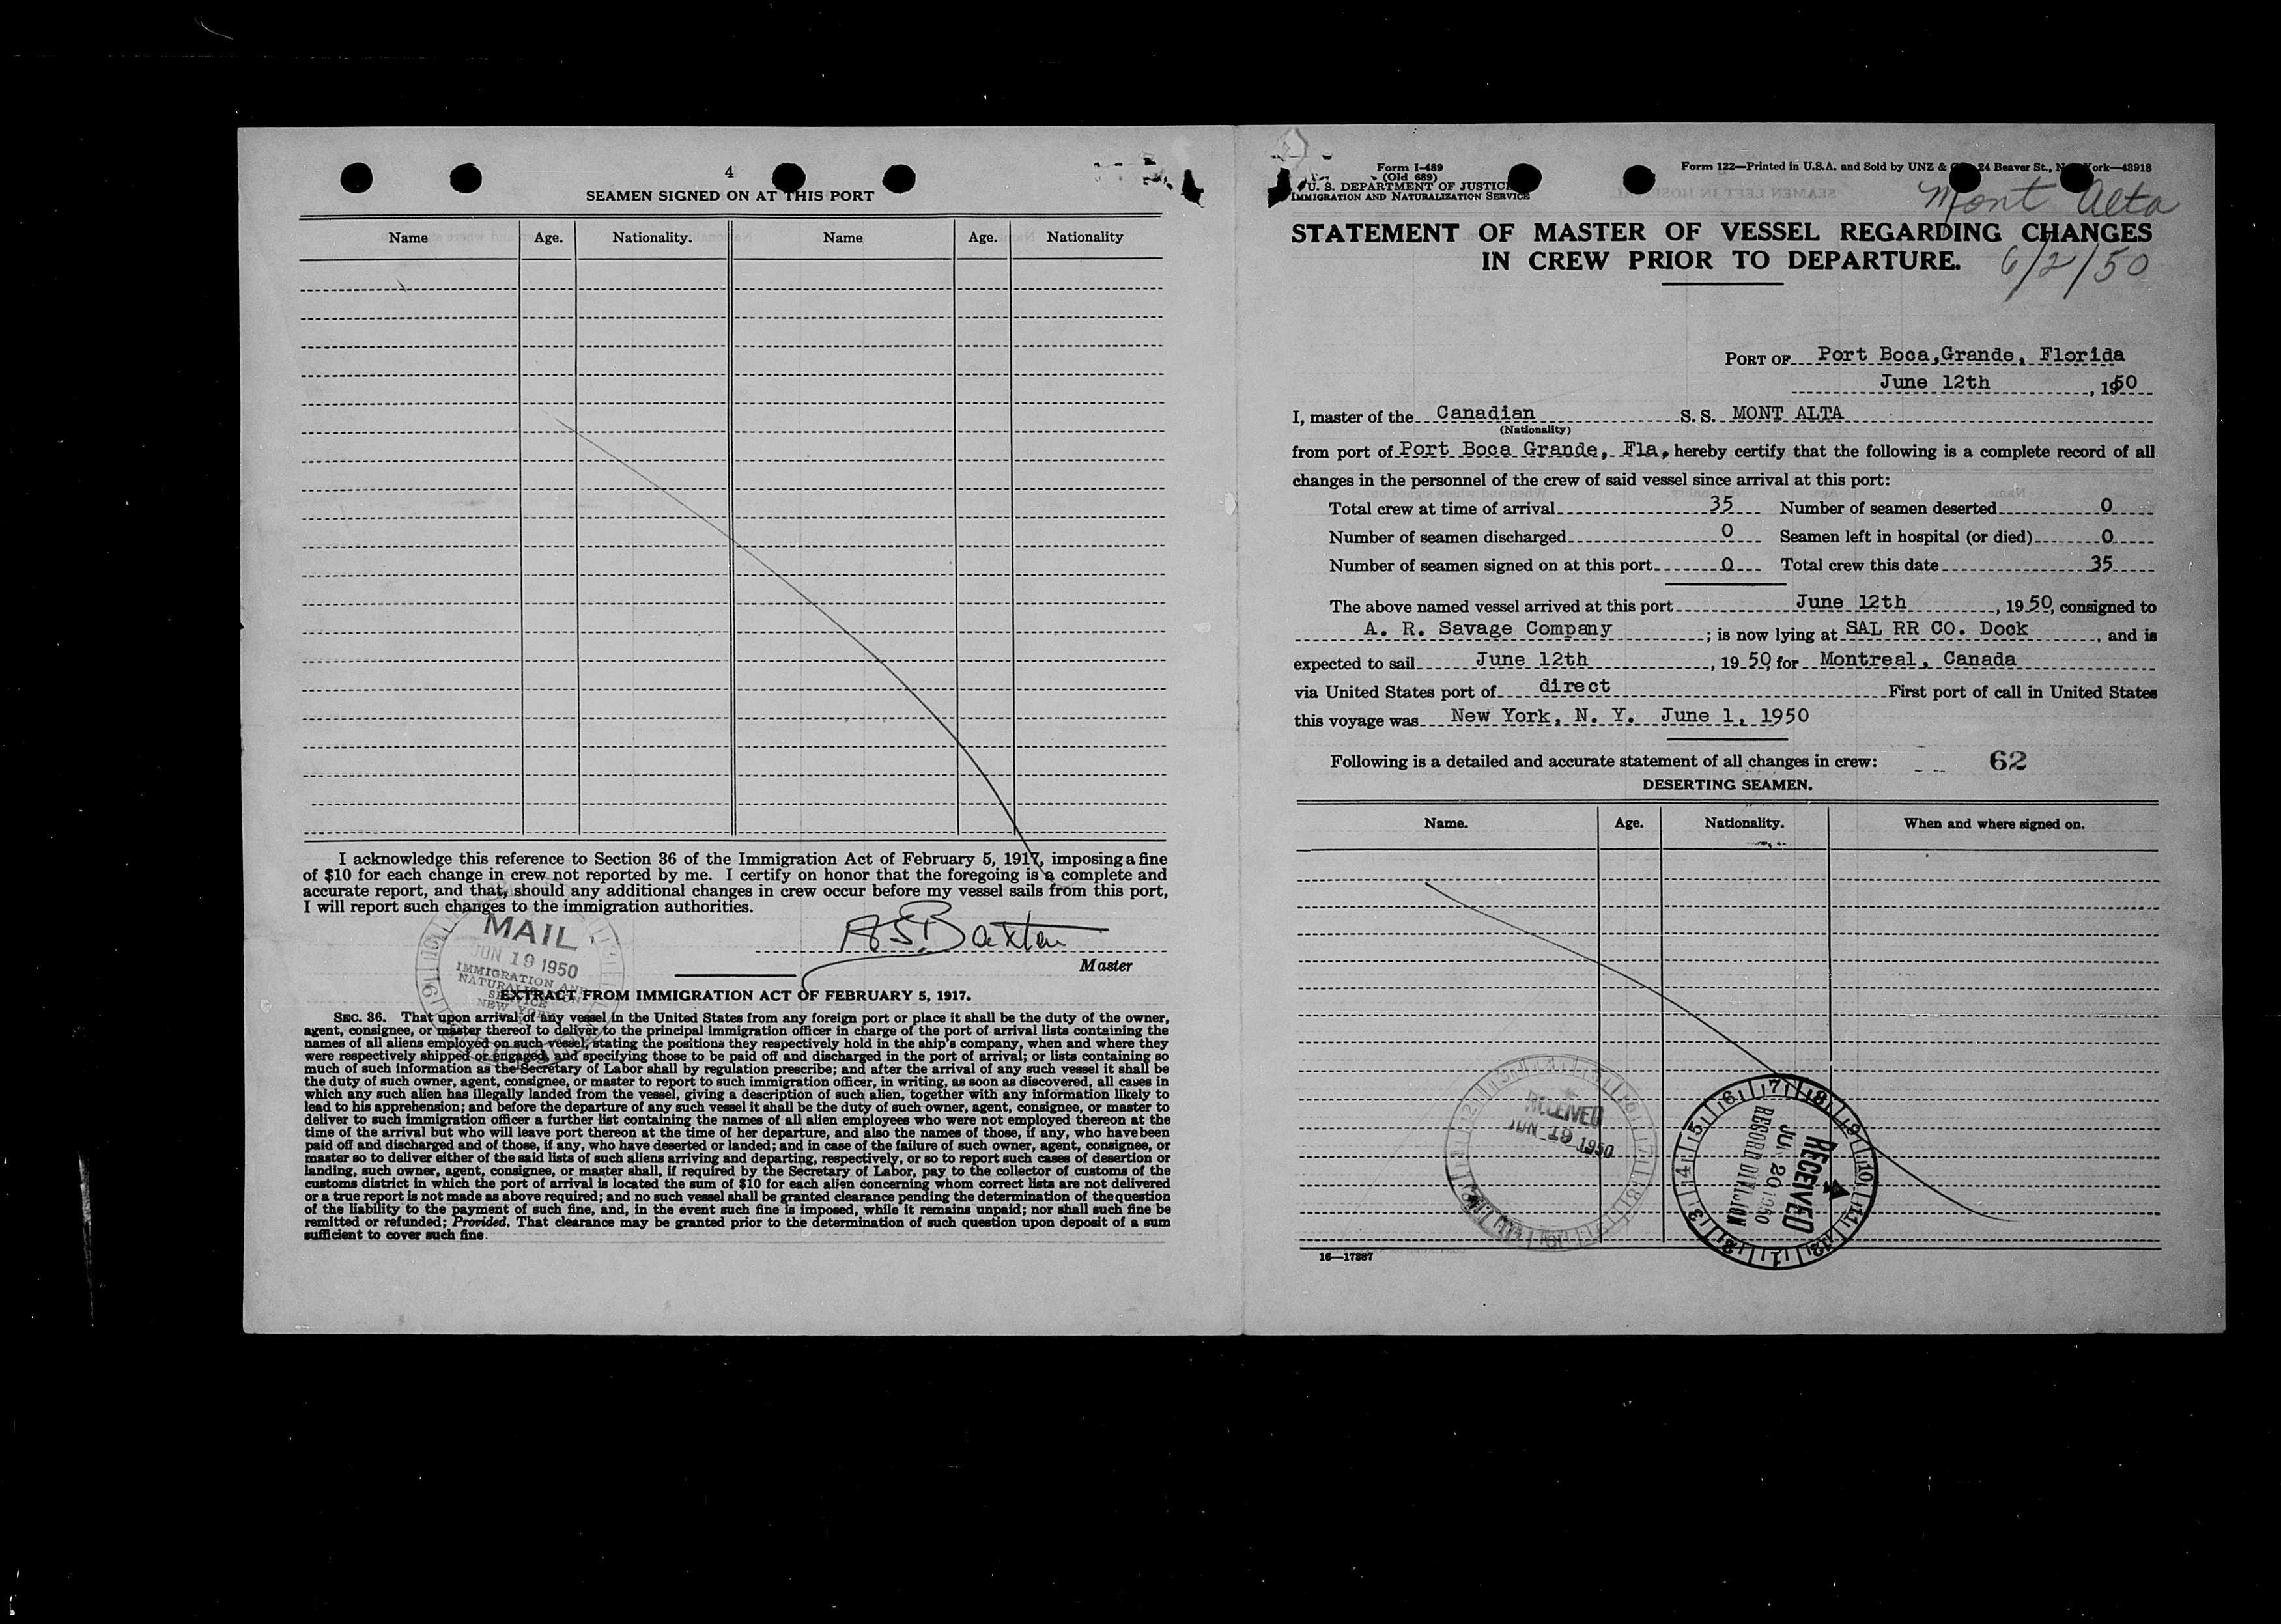 4
SEAMEN SIGNED ON AT THIS PORT
Name Age. Nationality. Name Age. Nationality
I acknowledge this reference to Section 36 of the Immigration Act of February 5, 1917, imposing a fine
of $10 for each change in crew not reported by me. I certify on honor that the foregoing is a complete and
accurate report, and that, should any additional changes in crew occur before my vessel sails from this port,
I will report such changes to the immigration authorities.
MAIL
JUN 19 1950
IMMIGRATION AND
NATURALIZATION
SERVICE
NEW YORK
Baxter
Master
EXTRACT FROM IMMIGRATION ACT OF FEBRUARY 5, 1917.
SEC. 36. That upon arrival of any vessel in the United States from any foreign port or place it shall be the duty of the owner,
agent, consignee, or master thereof to deliver to the principal immigration officer in charge of the port of arrival lists containing the
names of all aliens employed on such vessel, stating the positions they respectively hold in the ship's company, when and where they
were respectively shipped or engaged, and specifying those to be paid off and discharged in the port of arrival; or lists containing so
much of such information as the Secretary of Labor shall by regulation prescribe; and after the arrival of any such vessel it shall be
the duty of such owner, agent, consignee, or master to report to such immigration officer, in writing, as soon as discovered, all cases in
which any such alien has illegally landed from the vessel, giving a description of such alien, together with any information likely to
lead to his apprehension; and before the departure of any such vessel it shall be the duty of such owner, agent, consignee, or master to
deliver to such immigration officer a further list containing the names of all alien employees who were not employed thereon at the
time of the arrival but who will leave port thereon at the time of her departure, and also the names of those, if any, who have been
paid off and discharged and of those, if any, who have deserted or landed; and in case of the failure of such owner, agent, consignee, or
master so to deliver either of the said lists of such aliens arriving and departing, respectively, or so to report such cases of desertion or
landing, such owner, agent, consignee, or master shall, if required by the Secretary of Labor, pay to the collector of customs of the
customs district in which the port of arrival is located the sum of $10 for each alien concerning whom correct lists are not delivered
or a true report is not made as above required; and no such vessel shall be granted clearance pending the determination of the question
of the liability to the payment of such fine, and, in the event such fine is imposed, while it remains unpaid; nor shall such fine be
remitted or refunded; Provided, That clearance may be granted prior to the determination of such question upon deposit of a sum
sufficient to cover such fine.
Form I-489
(Old 689)
U. S. DEPARTMENT OF JUSTICE
IMMIGRATION AND NATURALIZATION SERVICE
Form 122—Printed in U.S.A. and Sold by UNZ & 24 Beaver St., York—43918
Mont Alta
STATEMENT OF MASTER OF VESSEL REGARDING CHANGES
IN CREW PRIOR TO DEPARTURE.
6/2/50
PORT OF Port Boca,Grande, Florida
June 12th, 1950
I, master of the Canadian S. S. MONT ALTA
(Nationality)
from port of Port Boca Grande, Fla, hereby certify that the following is a complete record of all
changes in the personnel of the crew of said vessel since arrival at this port:
Total crew at time of arrival 35 Number of seamen deserted 0
Number of seamen discharged 0 Seamen left in hospital (or died) 0
Number of seamen signed on at this port 0 Total crew this date 35
The above named vessel arrived at this port June 12th, 1950, consigned to
A. R. Savage Company; is now lying at SAL RR CO. Dock, and is
expected to sail June 12th, 1950, for Montreal, Canada
via United States port of direct First port of call in United States
this voyage was New York, N. Y. June 1, 1950
Following is a detailed and accurate statement of all changes in crew: 62
DESERTING SEAMEN.
Name. Age. Nationality. When and where signed on.
RECEIVED
JUN 19 1950
RECEIVED
JUN 20 1950
RECORD DIVISION
16—17387